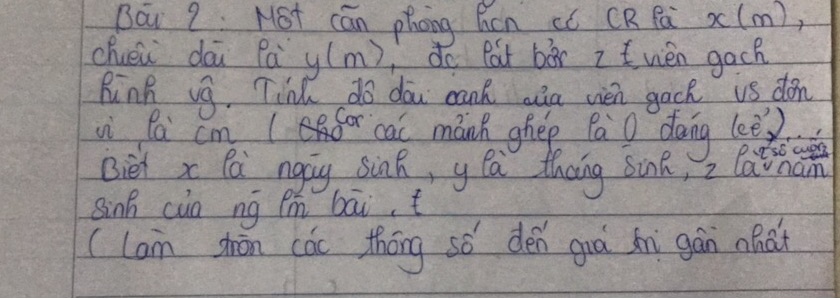 Bài 2: Một căn phòng hcn có CR là x(m),
chiều dài là y(m), đc lát bởi z viên gạch
hình vg. Tính độ dài cạnh của viên gạch vs đơn
vị là cm ( Coi các mảnh ghép là 0 đáng kể)...
Biết x là ngày sinh, y là tháng sinh, z là 2 số cuối năm
sinh của ng làm bài.
(Làm tròn các thông số đến giá trị gần nhất